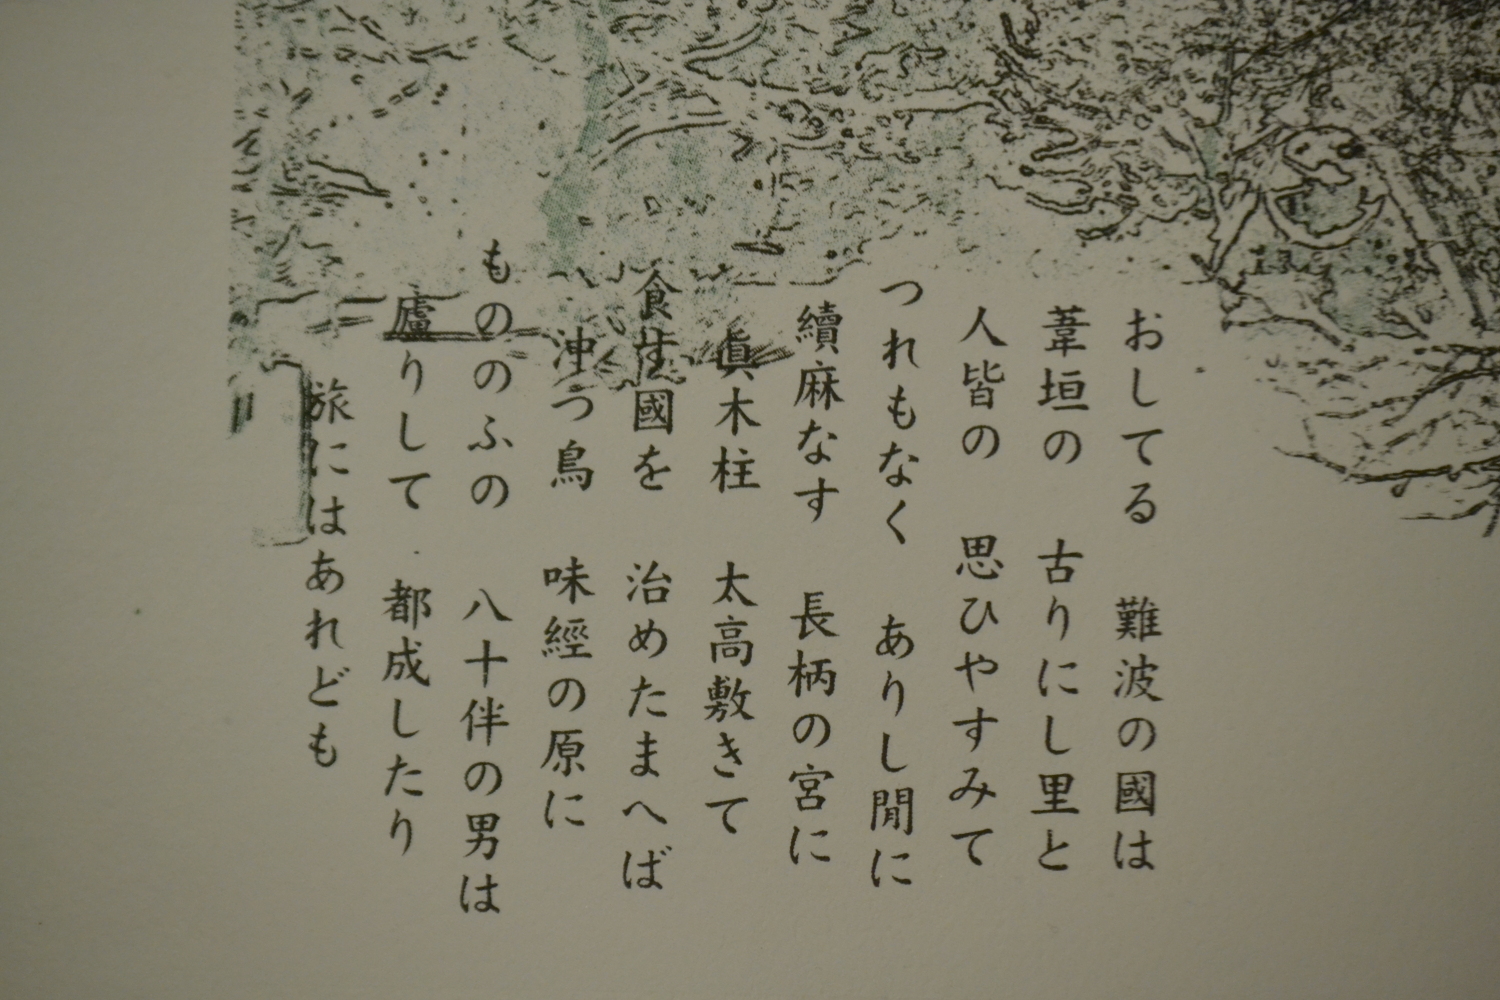 おしてる 難波の國は
葦垣の 古りにし里と
人皆の 思ひやすみて
つれもなく ありし間に
續麻なす 長柄の宮に
眞木柱 太高敷きて
食す國を 治めたまへば
沖つ鳥 味經の原に
もののふの 八十伴の男は
廬りして 都成したり
旅にはあれども